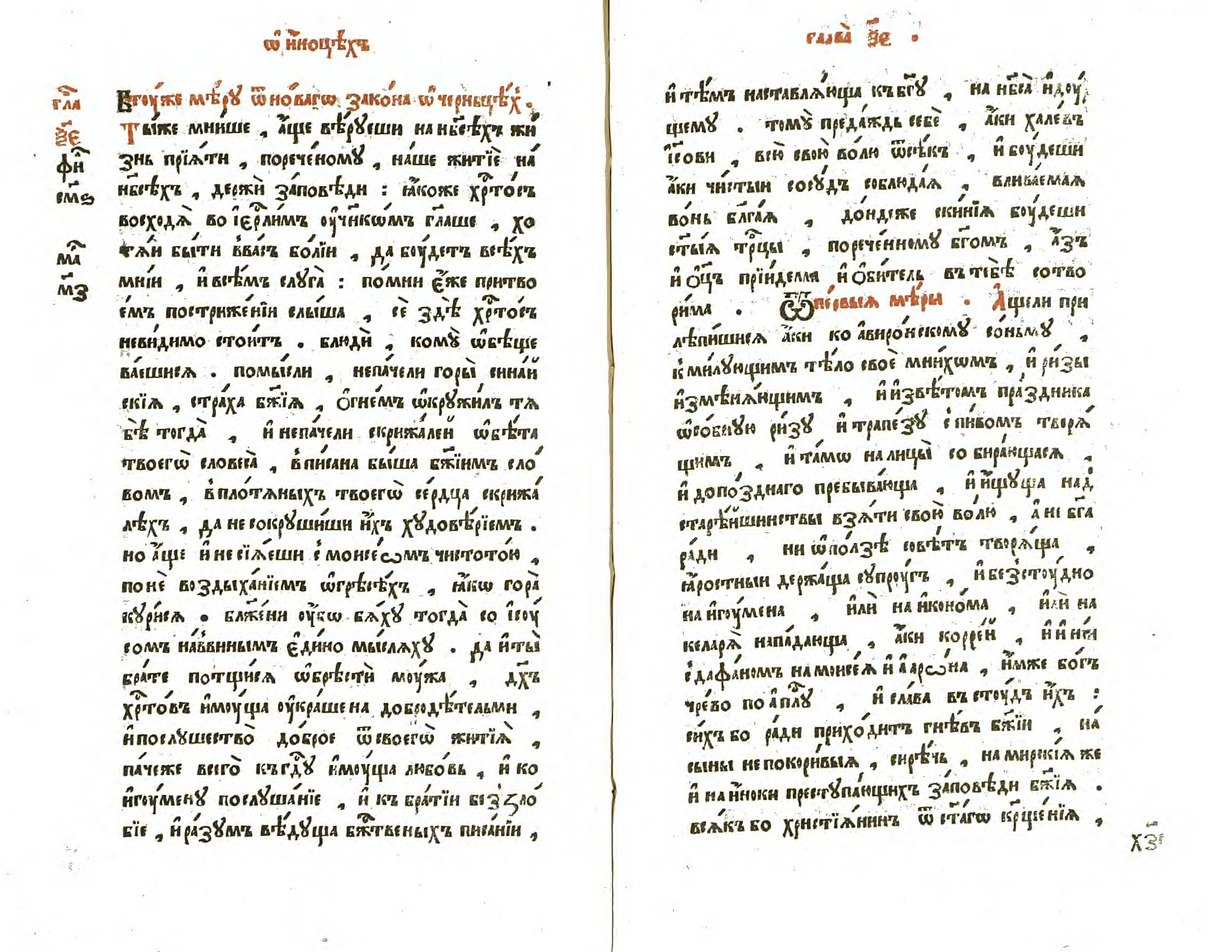 ѡ҆ и҆ноцѣхъ
Втоу́же мѣ́рꙋ ѿно́вагѡ зако́на ѡ҆ черньцѣ́хъ .
гла҃
Ты́же мни́ше , а҆́ще вѣ́рꙋеши на нб҃сѣ́хъ жи́
знь прїѧ́ти , порече́номꙋ , на́ше житїѐ на́
фи҃
нб҃сѣ́хъ , держѝ за́повѣди : ꙗ҆́коже хрⷭ҇то́съ
восходѧ̀ во і҆ерⷭ҇ли́мъ ѹ҆чн҃кѡ́мъ гл҃аше , хо
тѧ́и бы́ти в̾ва́съ бо́лїи , да бꙋ́детъ всѣ́хъ
ма҃
мні́и , и҆ всѣ́мъ слꙋга̀ : помни є҆́же притво
м҃з
е́мъ пострижє́нїи слы́ша , сѐ здѣ̀ хрⷭ҇то́съ
неви́димо стои́тъ . блюдѝ , комꙋ̀ ѡ҆бѣще
ва́ешисѧ . помы́сли , непа́чели горы̀ сина́й
скїѧ , стра́ха бж҃їѧ , ѻ҆гне́мъ ѡ҆крꙋжи́лъ тѧ
бѣ̀ тогда̀ , и҆ непа́чели скрижа́лей ѡ҆бѣ́та
твоегѡ̀ словеса̀ , впи́сана бы́ша бж҃їимъ сло́
вомъ , в̾плотѧ́ныхъ твоегѡ̀ се́рдца скрижа́
лѣхъ , да не сокрꙋши́ши и҆́хъ хꙋдовѣ́рїемъ .
но а҆́ще и҆ не сїѧ́еши с̾ моисе́ѡмъ чистото́ю ,
понѐ воздыха́нїемъ ѡ҆грѣсѣ́хъ , ꙗ҆́кѡ гора̀
кꙋри́сѧ . бл҃же́ни ѹ҆́бѡ бѧ́хꙋ тогда̀ со і҆сꙋ́
сомъ на́ввинымъ є҆ди́но мы́слѧхꙋ . да и҆ ты̀
бра́те потщи́сѧ ѡ҆брѣстѝ мꙋ́жа , дх҃ъ
хрⷭ҇то́въ и҆мꙋ́ща ѹ҆кра́шена добродѣ́тельми ,
и҆ послꙋшество̀ до́брое ѿ своегѡ̀ житїѧ̀ ,
па́чеже всегѡ̀ къ гдⷭ҇ꙋ и҆мꙋ́ща любо́вь , и҆ ко
и҆гꙋ́менꙋ послꙋша́нїе , и҆ къ бра́тїи беззло́
бїе , и҆ ра́зꙋмъ вѣ́дꙋща бж҃твеныхъ писа́нїи ,
глава̀ .
и҆ тѣ́мъ наставлѧ́юща къ бг҃ꙋ , на нб҃са̀ и҆дꙋ́
щемꙋ . томꙋ̀ преда́ждь себѐ , а҆́ки хале́въ
і҆со́ви , всю̀ свою̀ во́лю ѿсѣ́къ , и҆ бꙋ́деши
а҆́ки чи́стыи сосꙋ́дъ соблюда́ѧ , влива́емаѧ
во́нь бл҃га́ѧ , до́ндеже ски́нїѧ бꙋ́деши
ст҃ы́ѧ трⷪ҇цы , порече́нномꙋ бг҃омъ , а҆́зъ
и҆ ѻ҆ц҃ъ прїи́дема и҆ ѻ҆би́тель въ тебѣ̀ сотво
ри́ма . Ѿ пе́рвыѧ мѣ́ры . А҆́щели при
лѣпи́шисѧ а҆́ки ко а҆виро́нскомꙋ со́ньмꙋ ,
к̾ ми́лꙋющимъ тѣ́ло своѐ мни́хѡмъ , и҆ ри́зы
и҆змѣнѧ́ющимъ , и҆ и҆звѣ́томъ пра́здника
ѡ҆со́бнꙋю ри́зꙋ и҆ трапе́зꙋ с̾ пи́вомъ творѧ́
щимъ , и҆ та́мѡ на лицы̀ собира́ющасѧ ,
и҆ допо́зднаго пребыва́юща , и҆ и҆́щꙋща над̾
старѣ́йшинствы взѧ́ти свою̀ во́лю , а҆ не бг҃а
ра́ди , ни ѡ҆ по́лзѣ совѣ́тъ творѧ́ща ,
ꙗ҆́ростныи держа́ща сꙋпрꙋ́гъ , и҆ безстꙋ́дно
на и҆гꙋ́мена , и҆лѝ на и҆коно́ма , и҆лѝ на
келарѧ̀ напа́дающа , а҆́ки корре́й , и҆ и҆ні́и
с̾ дафа́номъ на моисе́ѧ и҆ а҆арѡ́на , и҆̀мже бо́гъ
чре́во по а҆пⷭ҇лꙋ , и҆ сла́ва въ стꙋ́дъ и҆́хъ :
си́хъ бо ра́ди прихо́дитъ гнѣ́въ бж҃їи , на́
сыны непокори́выѧ , си́рѣчь , на мирскі́ѧ же
и҆ на и҆́ноки престꙋпа́ющихъ за́повѣди бж҃їѧ .
всѧ́къ бо христїѧ́нинъ ѿ ст҃а́гѡ крⷭ҇ще́нїѧ ,